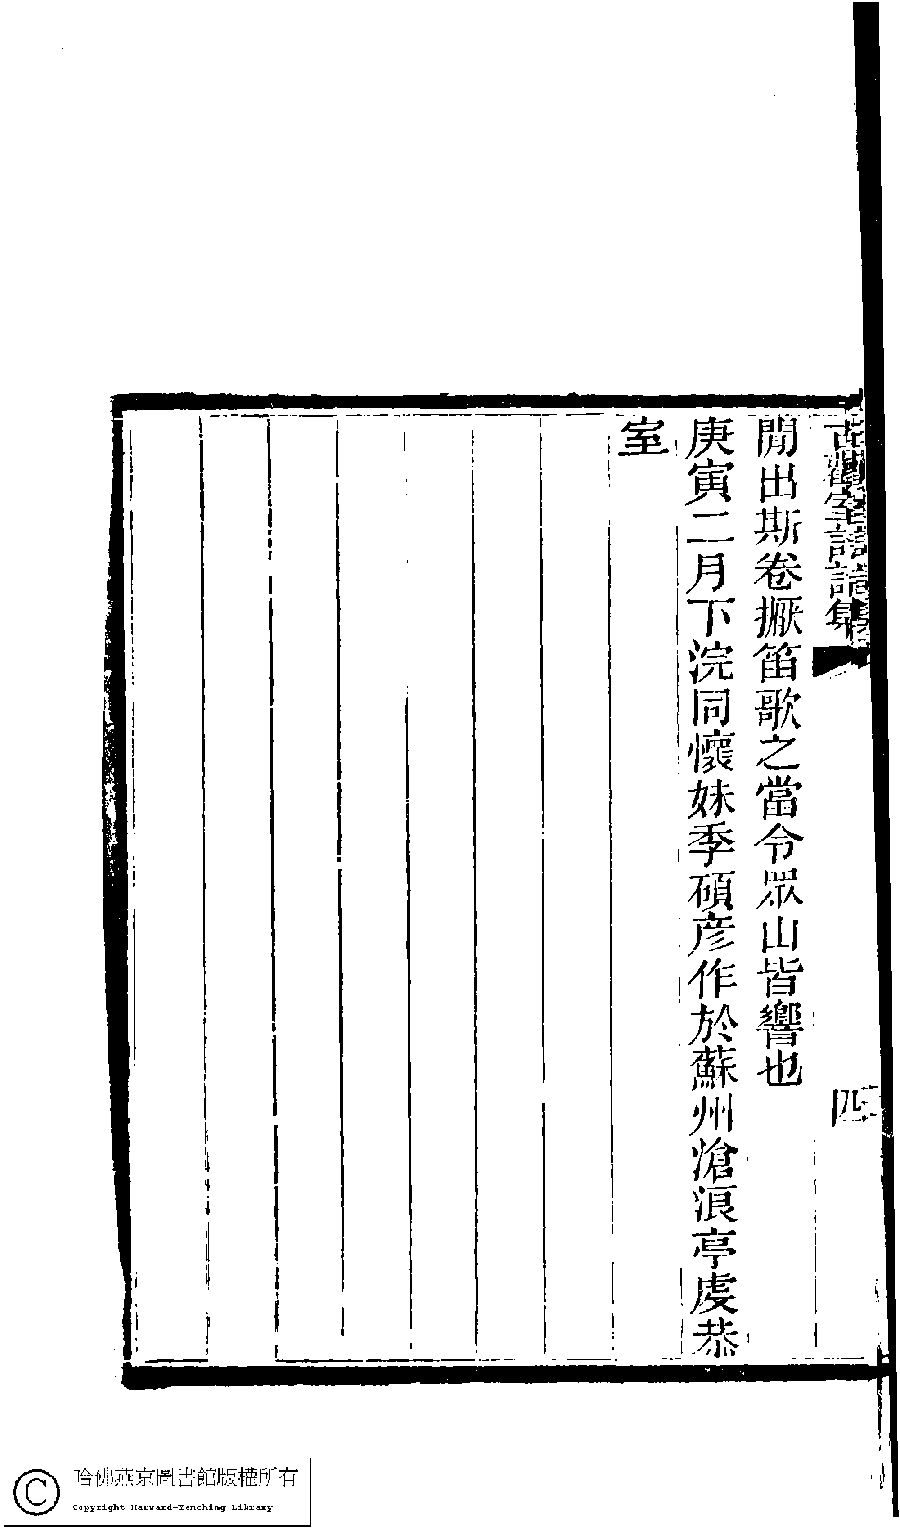 古歡室詩詞集
四
閒出斯卷擫笛歌之當令眾山皆響也
庚寅二月下浣同懷妹季碩彥作於蘇州滄浪亭虔恭
室
哈佛燕京圖書館版權所有
Copyright Harvard-Yenching Library